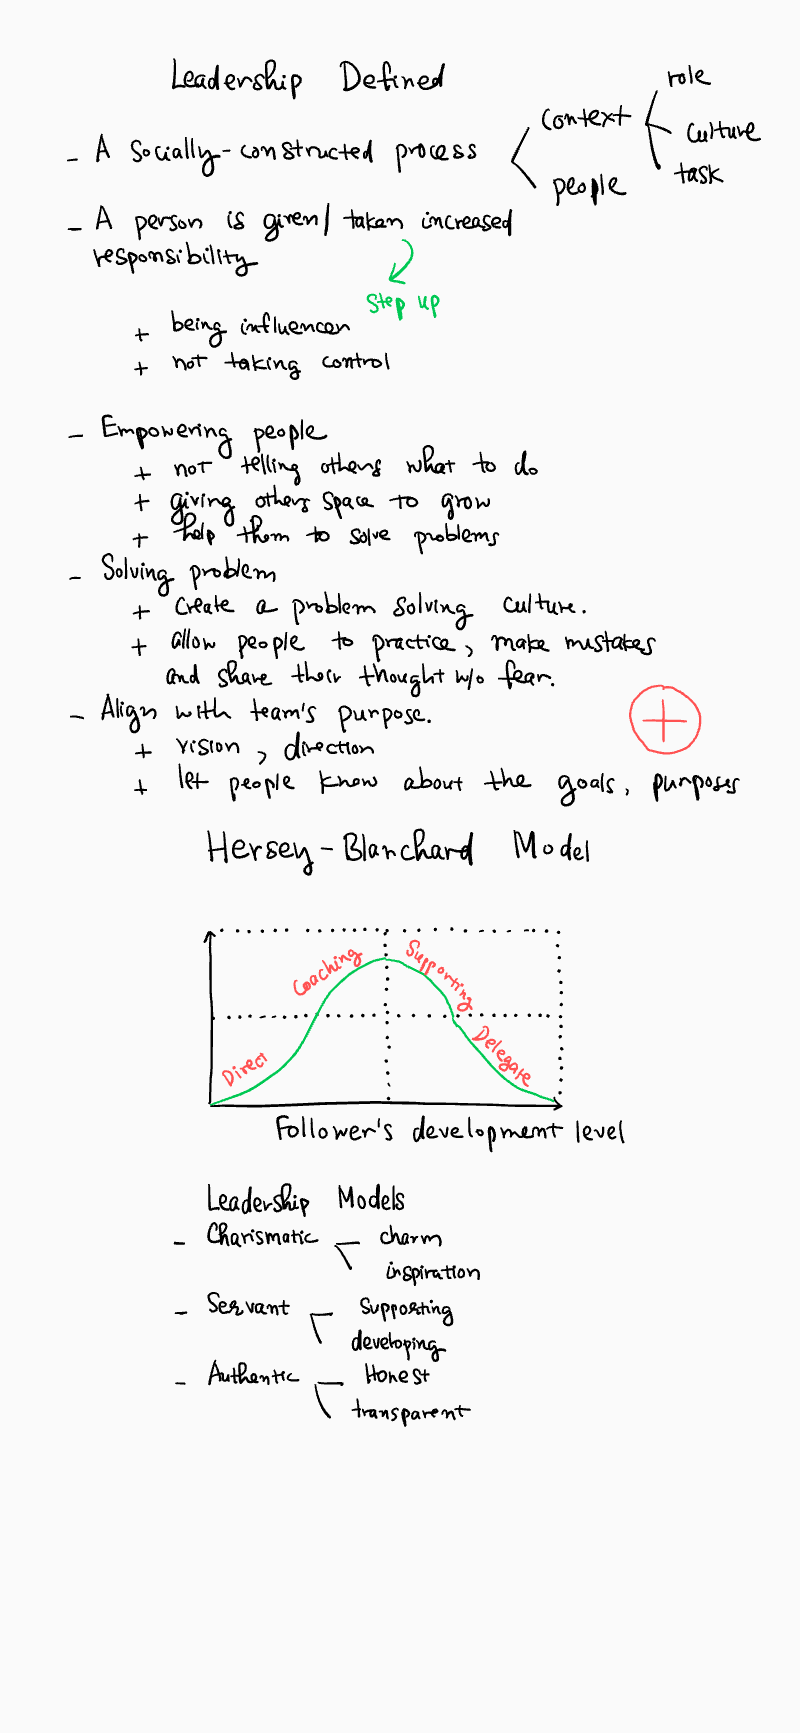 Leadership Defined
role
context
culture
- A Socially-constructed process
task
people
- A person is given/ taken increased
responsibility
Step up
+ being influencer
+ not taking control
- Empowering people
+ not telling others what to do
+ giving others space to grow
+ help them to solve problems
- Solving problem
+ create a problem solving culture.
+ allow people to practice, make mistakes
and share their thought w/o fear.
- Align with team's purpose.
+ vision, direction
+ let people know about the goals, purposes
Hersey-Blanchard Model
Coaching
Supporting
Direct
Delegate
Follower's development level
Leadership Models
- Charismatic
charm
inspiration
- Servant
Supporting
developing
- Authentic
Honest
transparent